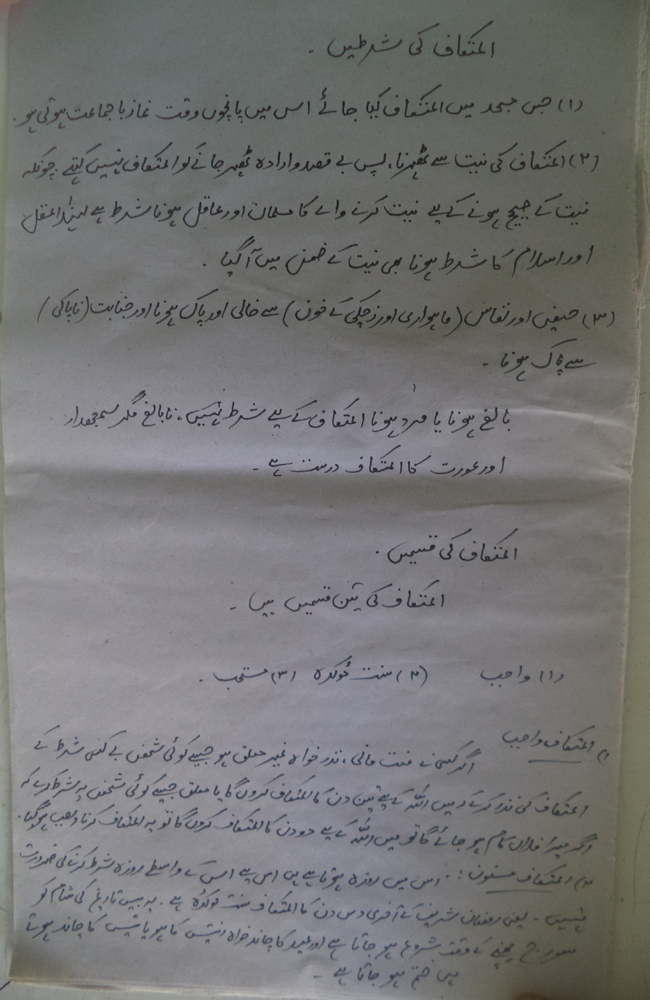 اعتکاف کی شرطیں ۔
(۱) جس مسجد میں اعتکاف کیا جائے اس میں پانچوں وقت نماز باجماعت ہوتی ہو۔
(۲) اعتکاف کی نیت سے ٹھہرنا، پس بے قصد و ارادہ ٹھہر جانے کو اعتکاف نہیں کہتے چونکہ
نیت کے صحیح ہونے کے لیے نیت کرنے والے کا مسلمان اور عاقل ہونا شرط ہے لہٰذا عقل
اور اسلام کا شرط ہونا بھی نیت کے ضمن میں آ گیا ۔
(۳) حیض اور نفاس (ماہواری اور زچگی کے خون) سے خالی اور پاک ہونا اور جنابت (ناپاکی)
سے پاک ہونا ۔
بالغ ہونا یا مرد ہونا اعتکاف کے لیے شرط نہیں، نابالغ مگر سمجھدار
اور عورت کا اعتکاف درست ہے ۔
اعتکاف کی قسمیں ۔
اعتکاف کی تین قسمیں ہیں ۔
(۱) واجب (۲) سنت مؤکدہ (۳) مستحب ۔
۱) اعتکاف واجب
اگر کسی نے منت مانی، نذر خواہ غیر معلق ہو جیسے کوئی شخص بے کسی شرط کے
اعتکاف کی نذر کرے کہ میں اللہ کے لیے تین دن کا اعتکاف کروں گا یا معلق جیسے کوئی شخص یہ شرط کرے کہ
اگر میرا فلاں کام ہو جائے گا تو میں اللہ کے لیے دو دن کا اعتکاف کروں گا تو یہ اعتکاف کرنا واجب ہو گیا۔
۲) اعتکاف مسنون :۔ اس میں روزہ ہوتا ہے ہی اس لیے اس کے واسطے روزہ شرط کرنے کی ضرورت
نہیں ۔ یعنی رمضان شریف کے آخری دس دن کا اعتکاف سنت مؤکدہ ہے ۔ یہ بیس تاریخ کی شام کو
سورج چھپنے کے وقت شروع ہو جاتا ہے اور عید کا چاند خواہ انتیس کا ہو یا تیس کا چاند ہوتے
ہی ختم ہو جاتا ہے ۔